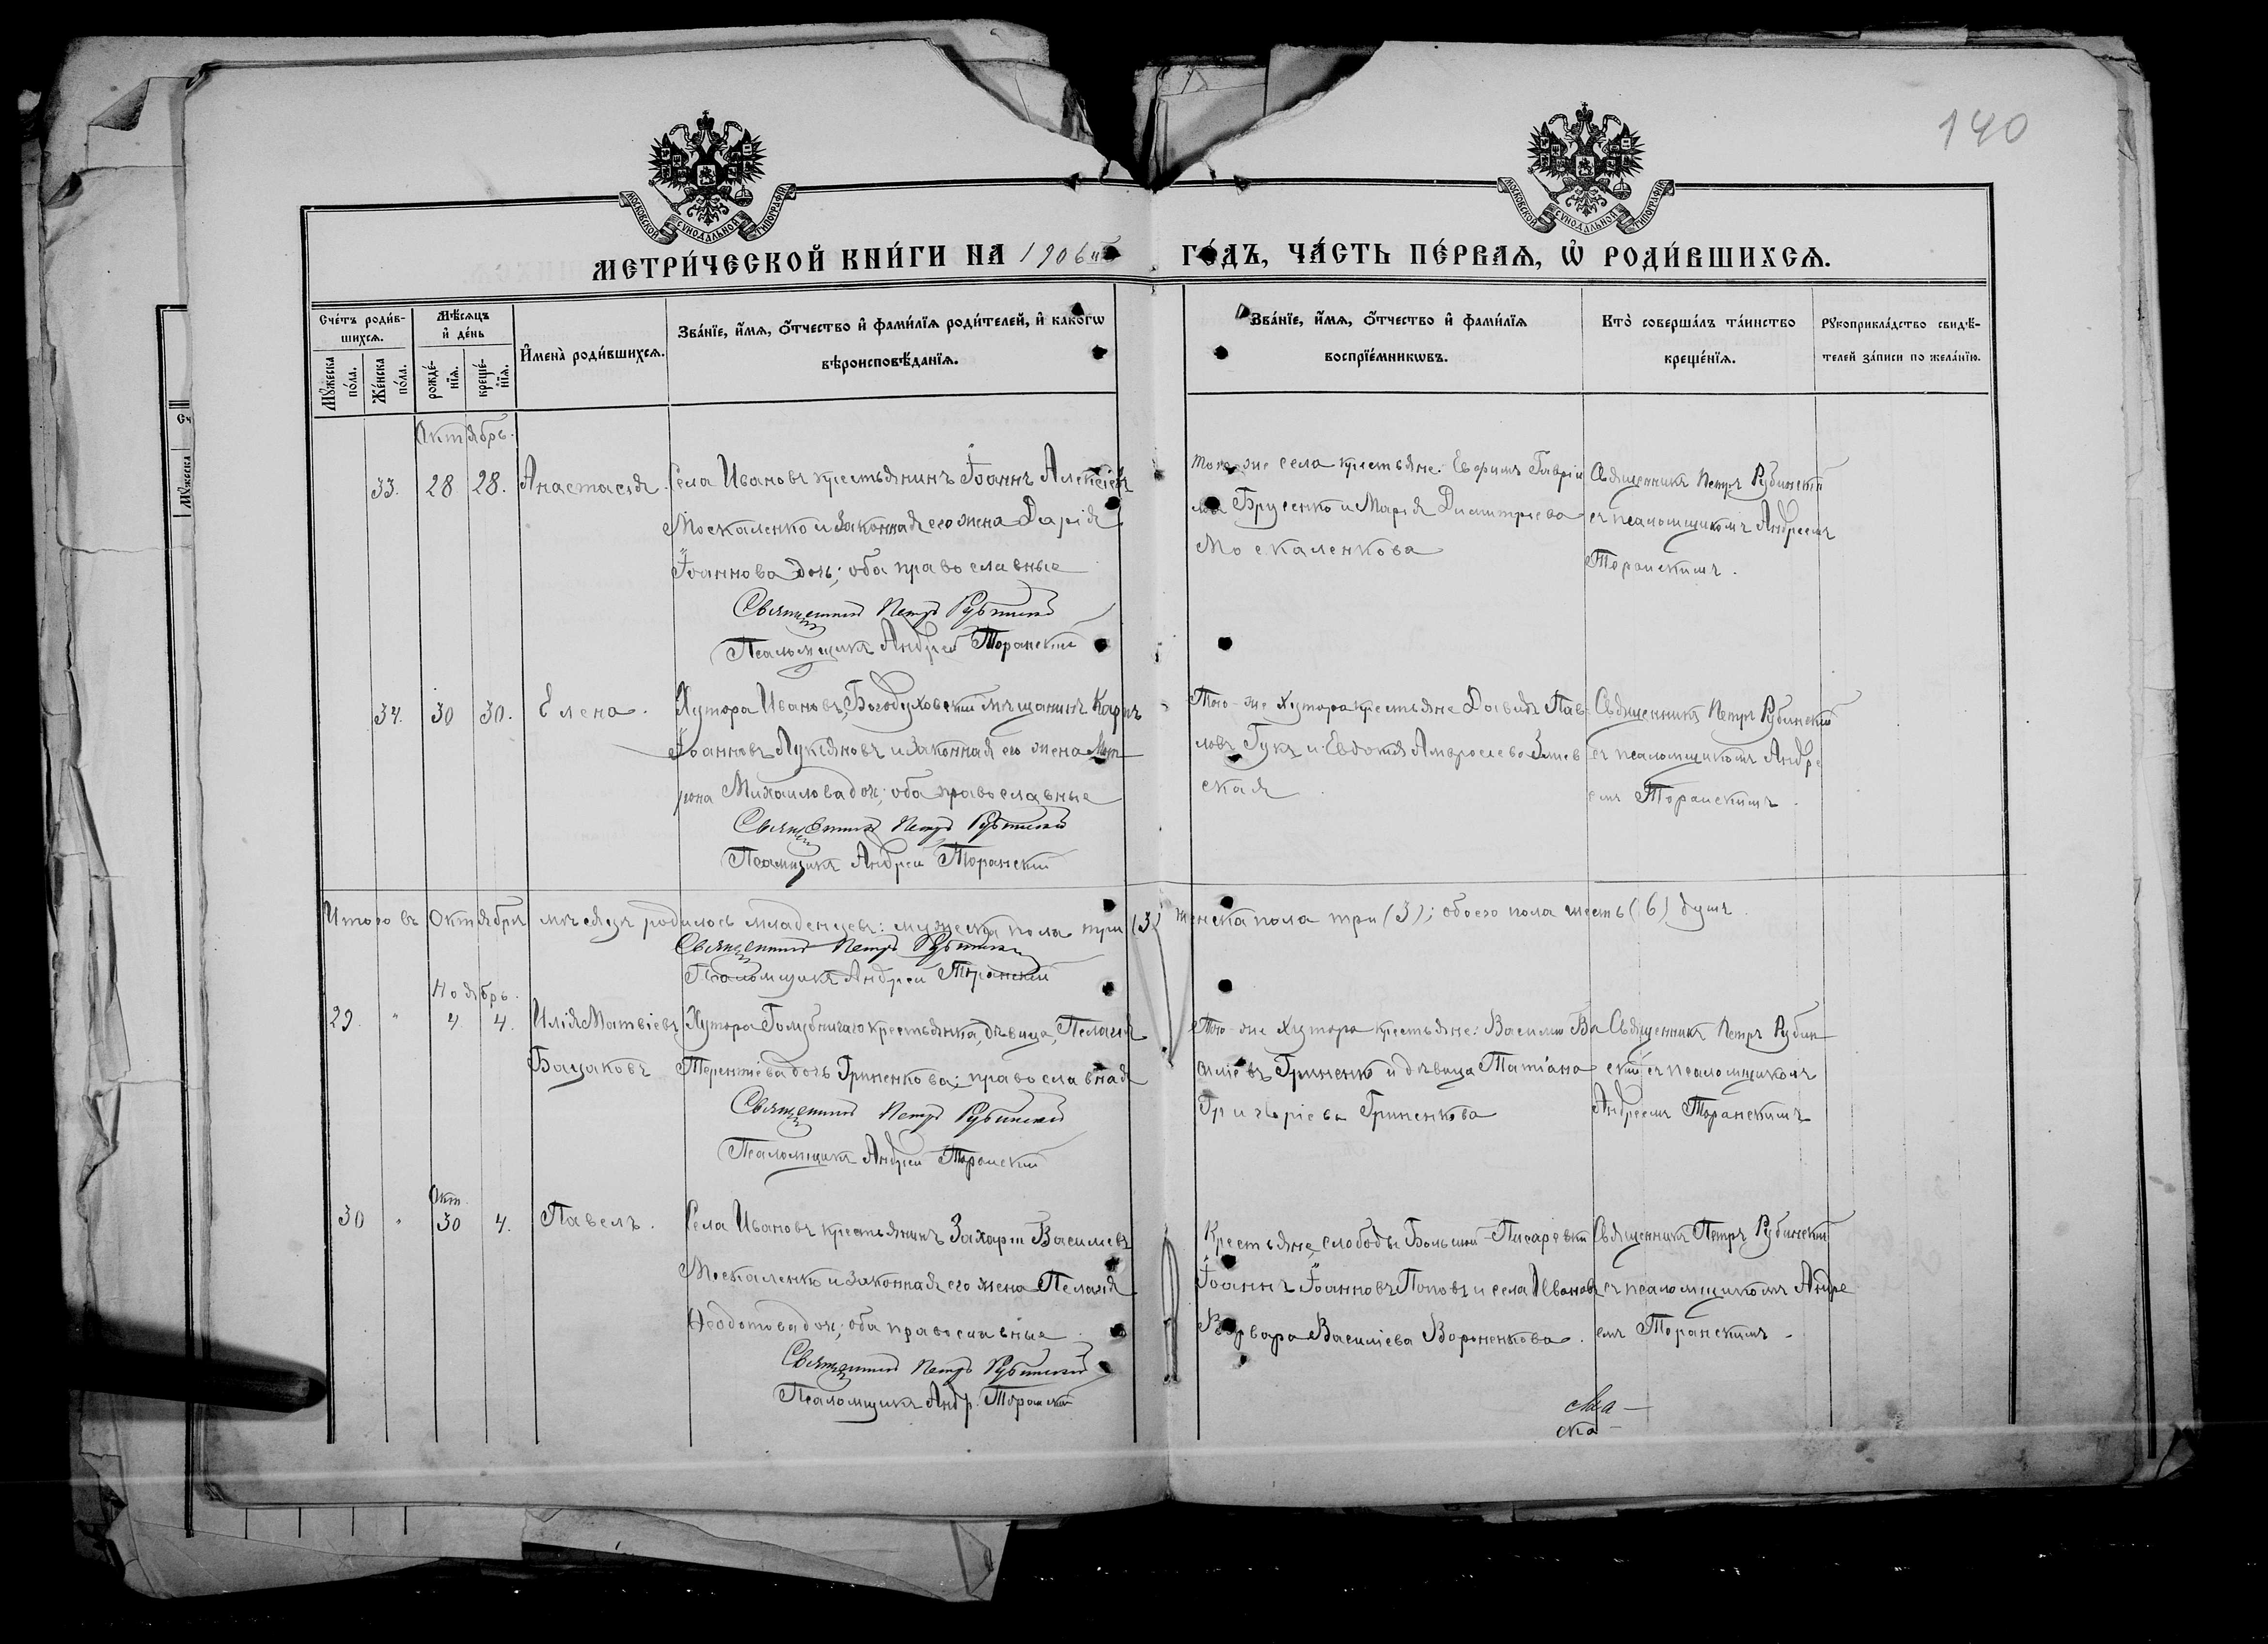 140
МОСКОВСКОЙ СѴНОДАЛЬНОЙ ТИПОГРАФІИ
МОСКОВСКОЙ СѴНОДАЛЬНОЙ ТИПОГРАФІИ
МЕТРИ́ЧЕСКОЙ КНИ́ГИ НА 1906й ГО́ДЪ, ЧА́СТЬ ПЕ́РВАѦ, Ѡ҆ РОДИ́ВШИХСѦ.
Сче́тъ роди́в-
шихсѧ.
Мꙋ́жеска по́ла.
Же́нска по́ла.
Мѣ́сѧцъ и҆ де́нь
рожде́-нїѧ.
креще́-нїѧ.
И҆мена̀ роди́вшихсѧ.
Зва́нїе, и҆́мѧ, ѻ҆́тчество и҆ фами́лїѧ роди́телей, и҆ како́гѡ
вѣроисповѣ́данїѧ.
Зва́нїе, и҆́мѧ, ѻ҆́тчество и҆ фами́лїѧ
воспрїе́мникѡвъ.
Кто̀ соверша́лъ та́инство
креще́нїѧ.
Рꙋкоприкла́дство свидѣ́-
телей за́писи по жела́нїю.
Октябрь.
33. 28 28. Анастасія. Села Ивановъ крестьянинъ Іоаннъ Алексіевъ
Москаленко и законная его жена Дарія
Іоаннова дочь; оба православные
Священникъ Петръ Рубинскій
Псаломщикъ Андрей Торанскій
Того-же села крестьяне: Евфимъ Гавріи
Брусенко и Марія Димитріева
Москаленкова
Священникъ Петръ Рубинскій
съ псаломщикомъ Андреемъ
Торанскимъ.
34. 30 30. Елена. Хутора Ивановъ, Богодуховскій мѣщанинъ Карпъ
Іоанновъ Лукіяновъ и законная его жена Мат
рона Михаилова дочь; оба православные
Священникъ Петръ Рубинскій
Псаломщикъ Андрей Торанскій
Того-же Хутора крестьяне Давидъ Пав
ловъ Гукъ и Евдокія Амвросіева Зміев
ская
Священникъ Петръ Рубинскій
съ псаломщикомъ Андре
емъ Торанскимъ.
Итого въ Октябрѣ мѣсяцѣ родилось младенцевъ: мужеска пола три (3) женска пола три (3); обоего пола шесть (6) душъ.
Священникъ Петръ Рубинскій
Псаломщикъ Андрей Торанскій
Ноябрь.
29. " 4 4. Илія Матвіевъ Хутора Голубничаго крестьянка, дѣвица, Пелагія
Бацаковъ Терентіева дочь Гриненкова; православная
Священникъ Петръ Рубинскій
Псаломщикъ Андрей Торанскій
Того-же Хутора крестьяне: Василій Ва
силіевъ Гриненко и дѣвица Татіана
Григоріева Гриненкова
Священникъ Петръ Рубин
скій съ псаломщикомъ
Андреемъ Торанскимъ
Окт.
30 " 30 4. Павелъ. Села Ивановъ крестьянинъ Захарій Василіевъ
Москаленко и законная его жена Пелагія
Ѳеодотова дочь; оба православные.
Священникъ Петръ Рубинскій
Псаломщикъ Андр. Торанскій
Крестьяне, слободы Большой-Писаревки
Іоаннъ Іоанновъ Поповъ и села Ивановъ
Варвара Василіева Вороненкова.
Священникъ Петръ Рубинскій
съ псаломщикомъ Андре
емъ Торанскимъ.
ска